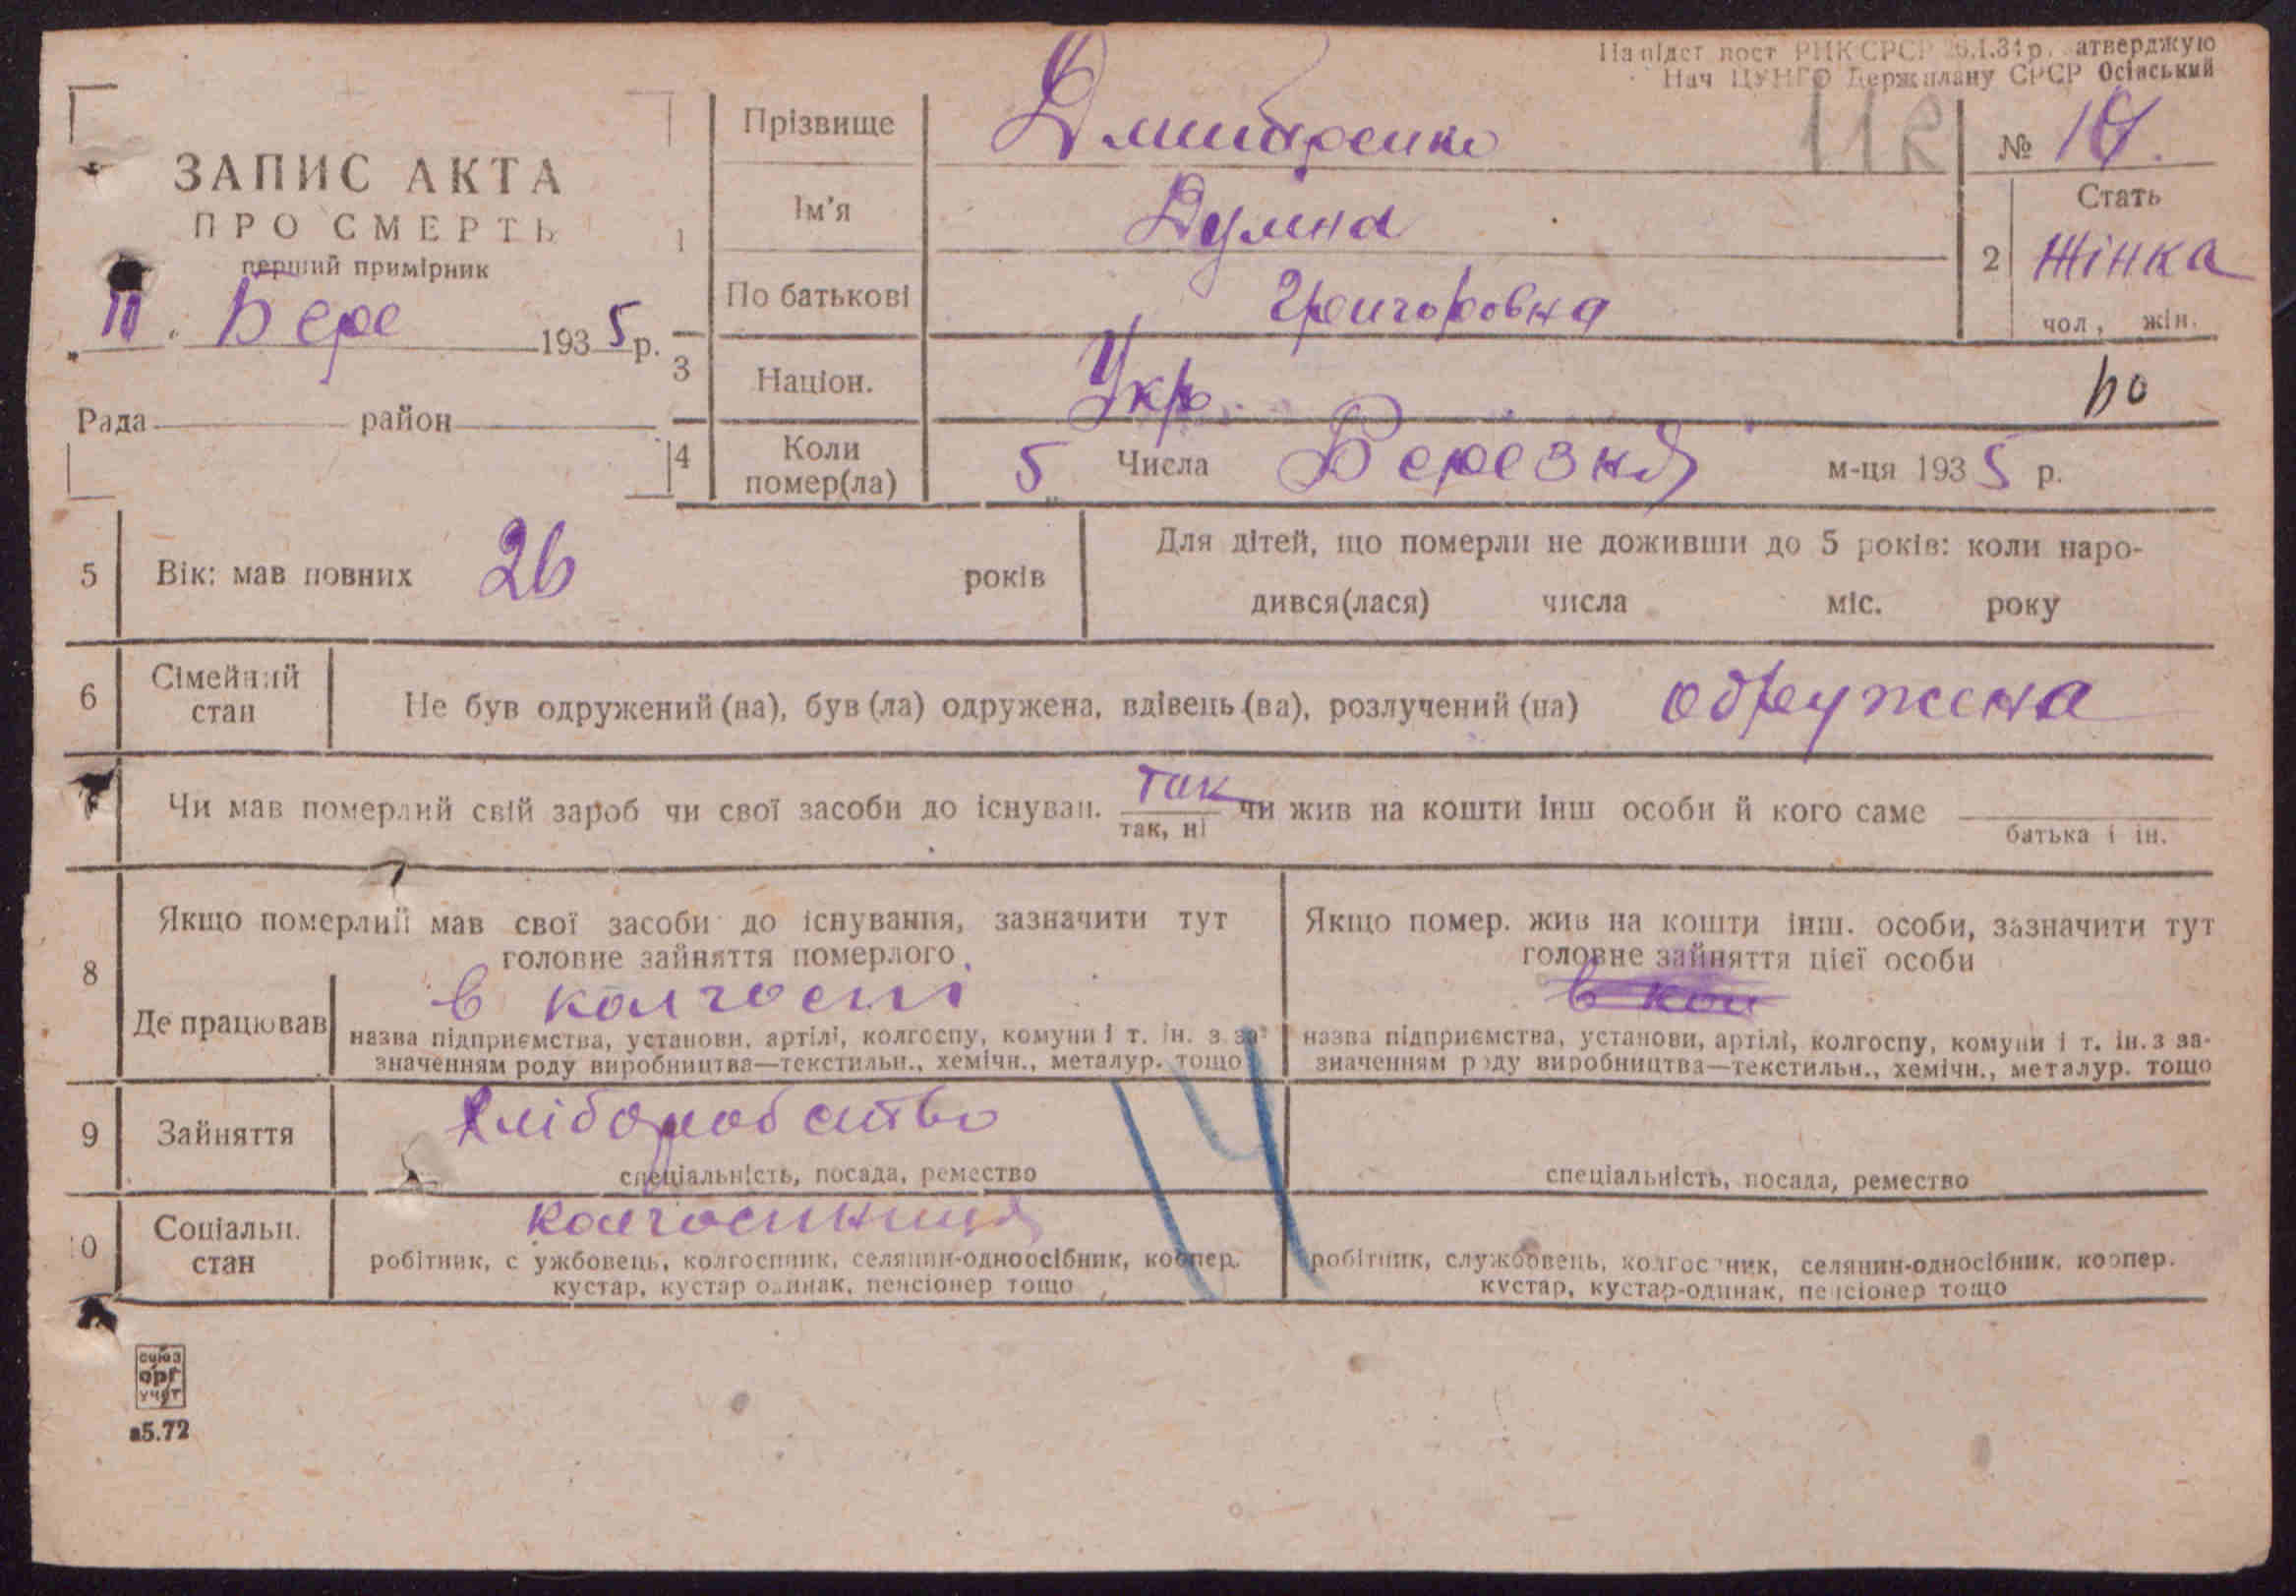 На підст пост РНК СРСР 26.1.34 р. затверджую
Нач ЦУНГО Держплану СРСР Осінський
ЗАПИС АКТА
ПРО СМЕРТЬ
перший примірник
Бере 1935 р.
Рада район
1
Прізвище Дмитренко
№
Ім'я
По батькові Григоровна
2 Стать Жінка
чол, жін.
3 Націон. Укр.
4 Коли помер(ла) 5 Числа Березня м-ця 1935 р.
5 Вік: мав повних 26 років
Для дітей, що померли не доживши до 5 років: коли наро-
дився(лася) числа міс. року
6 Сімейний стан Не був одружений (на), був (ла) одружена, вдівець (ва), розлучений (на) одружена
Чи мав померлий свій зароб чи свої засоби до існуван. так чи жив на кошти інш особи й кого саме
так, ні
батька і ін.
8 Якщо померлий мав свої засоби до існування, зазначити тут
головне зайняття померлого
Де працював в колгоспі
назва підприємства, установи, артілі, колгоспу, комуни і т. ін. з за-
значенням роду виробництва—текстильн., хемічн., металур. тощо
Якщо помер. жив на кошти інш. особи, зазначити тут
головне зайняття цієї особи
в кол
назва підприємства, установи, артілі, колгоспу, комуни і т. ін. з за-
значенням роду виробництва—текстильн., хемічн., металур. тощо
9 Зайняття Хліборобство
спеціальність, посада, ремество
спеціальність, посада, ремество
10 Соціальн. стан колгоспниця
робітник, службовець, колгоспник, селянин-одноосібник, коопер.
кустар, кустар одинак, пенсіонер тощо
робітник, службовець, колгоспник, селянин-односібник, коопер.
кустар, кустар-одинак, пенсіонер тощо
союз
орг
учет
а5.72